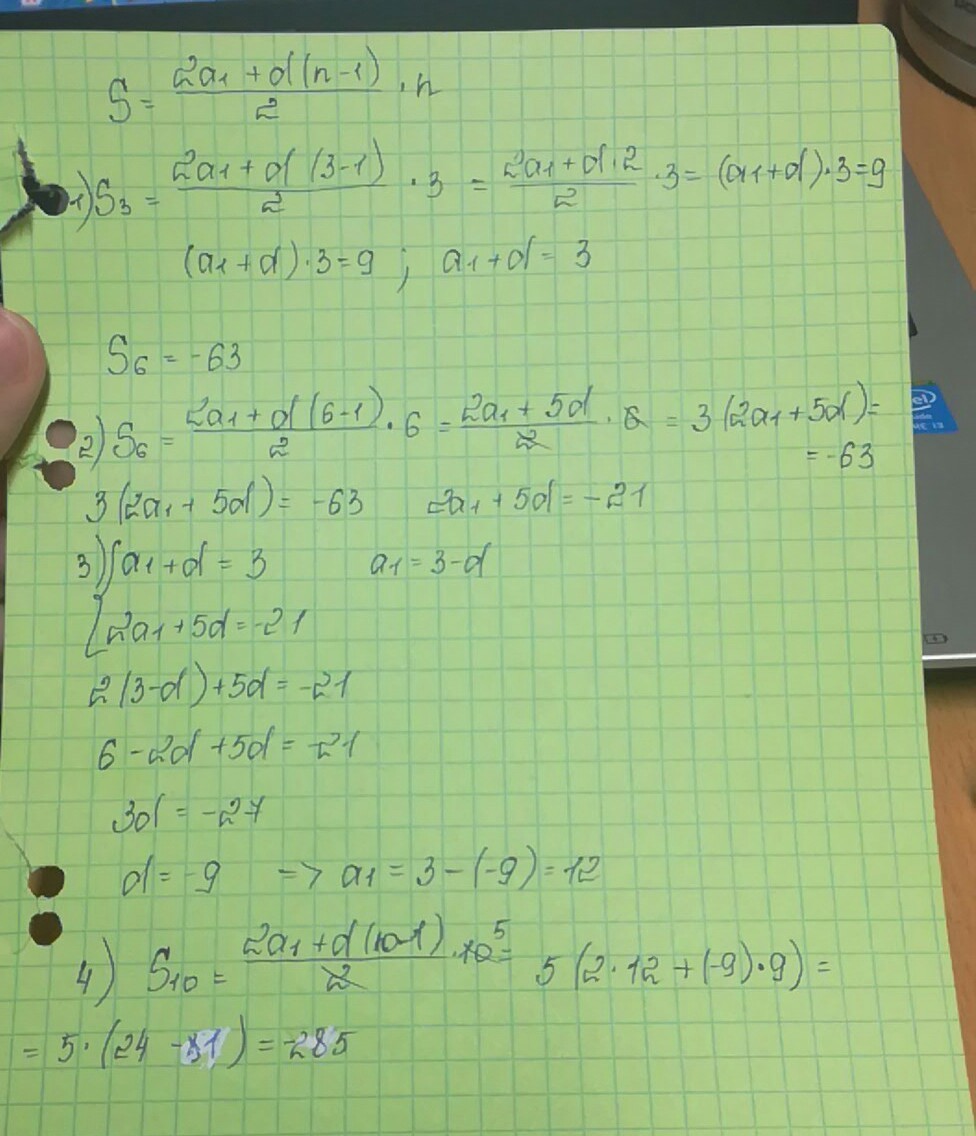 S = (2a₁ + d(n-1))/2 · n
1) S₃ = (2a₁ + d(3-1))/2 · 3 = (2a₁ + d·2)/2 · 3 = (a₁+d)·3=9
(a₁+d)·3=9 ; a₁+d= 3
S₆ = -63
2) S₆ = (2a₁ + d(6-1))/2 · 6 = (2a₁ + 5d)/2 · 6 = 3(2a₁+5d)=
= -63
3(2a₁+ 5d)= -63 2a₁+5d = -21
3) {a₁+d = 3 a₁=3-d
2a₁+5d=-21
2(3-d)+5d= -21
6-2d+5d= -21
3d = -27
d= -9 => a₁ = 3-(-9)=12
4) S₁₀ = (2a₁+d(10-1))/2 · 10 5 = 5(2·12+(-9)·9) =
= 5·(24 -81) = -285
intel